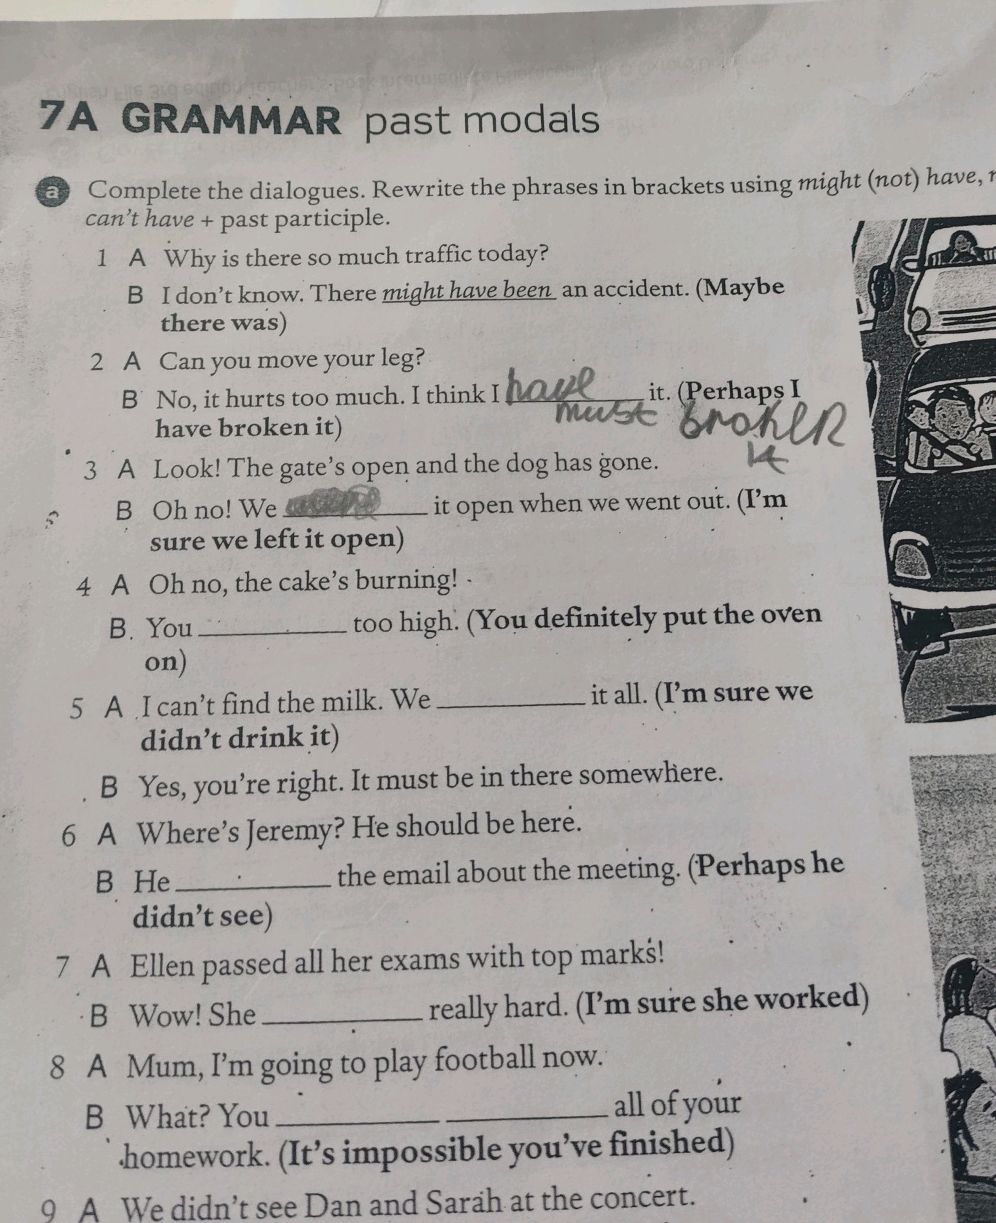 7A GRAMMAR past modals
a Complete the dialogues. Rewrite the phrases in brackets using might (not) have,
can't have + past participle.
1 A Why is there so much traffic today?
B I don't know. There might have been an accident. (Maybe
there was)
2 A Can you move your leg?
B No, it hurts too much. I think I have it. (Perhaps I
must broken
have broken it)
it
3 A Look! The gate's open and the dog has gone.
B Oh no! We ________ it open when we went out. (I'm
sure we left it open)
4 A Oh no, the cake's burning!
B. You ________ too high. (You definitely put the oven
on)
5 A I can't find the milk. We ________ it all. (I'm sure we
didn't drink it)
B Yes, you're right. It must be in there somewhere.
6 A Where's Jeremy? He should be here.
B He ________ the email about the meeting. (Perhaps he
didn't see)
7 A Ellen passed all her exams with top marks!
B Wow! She ________ really hard. (I'm sure she worked)
8 A Mum, I'm going to play football now.
B What? You ________ ________ all of your
homework. (It's impossible you've finished)
9 A We didn't see Dan and Sarah at the concert.